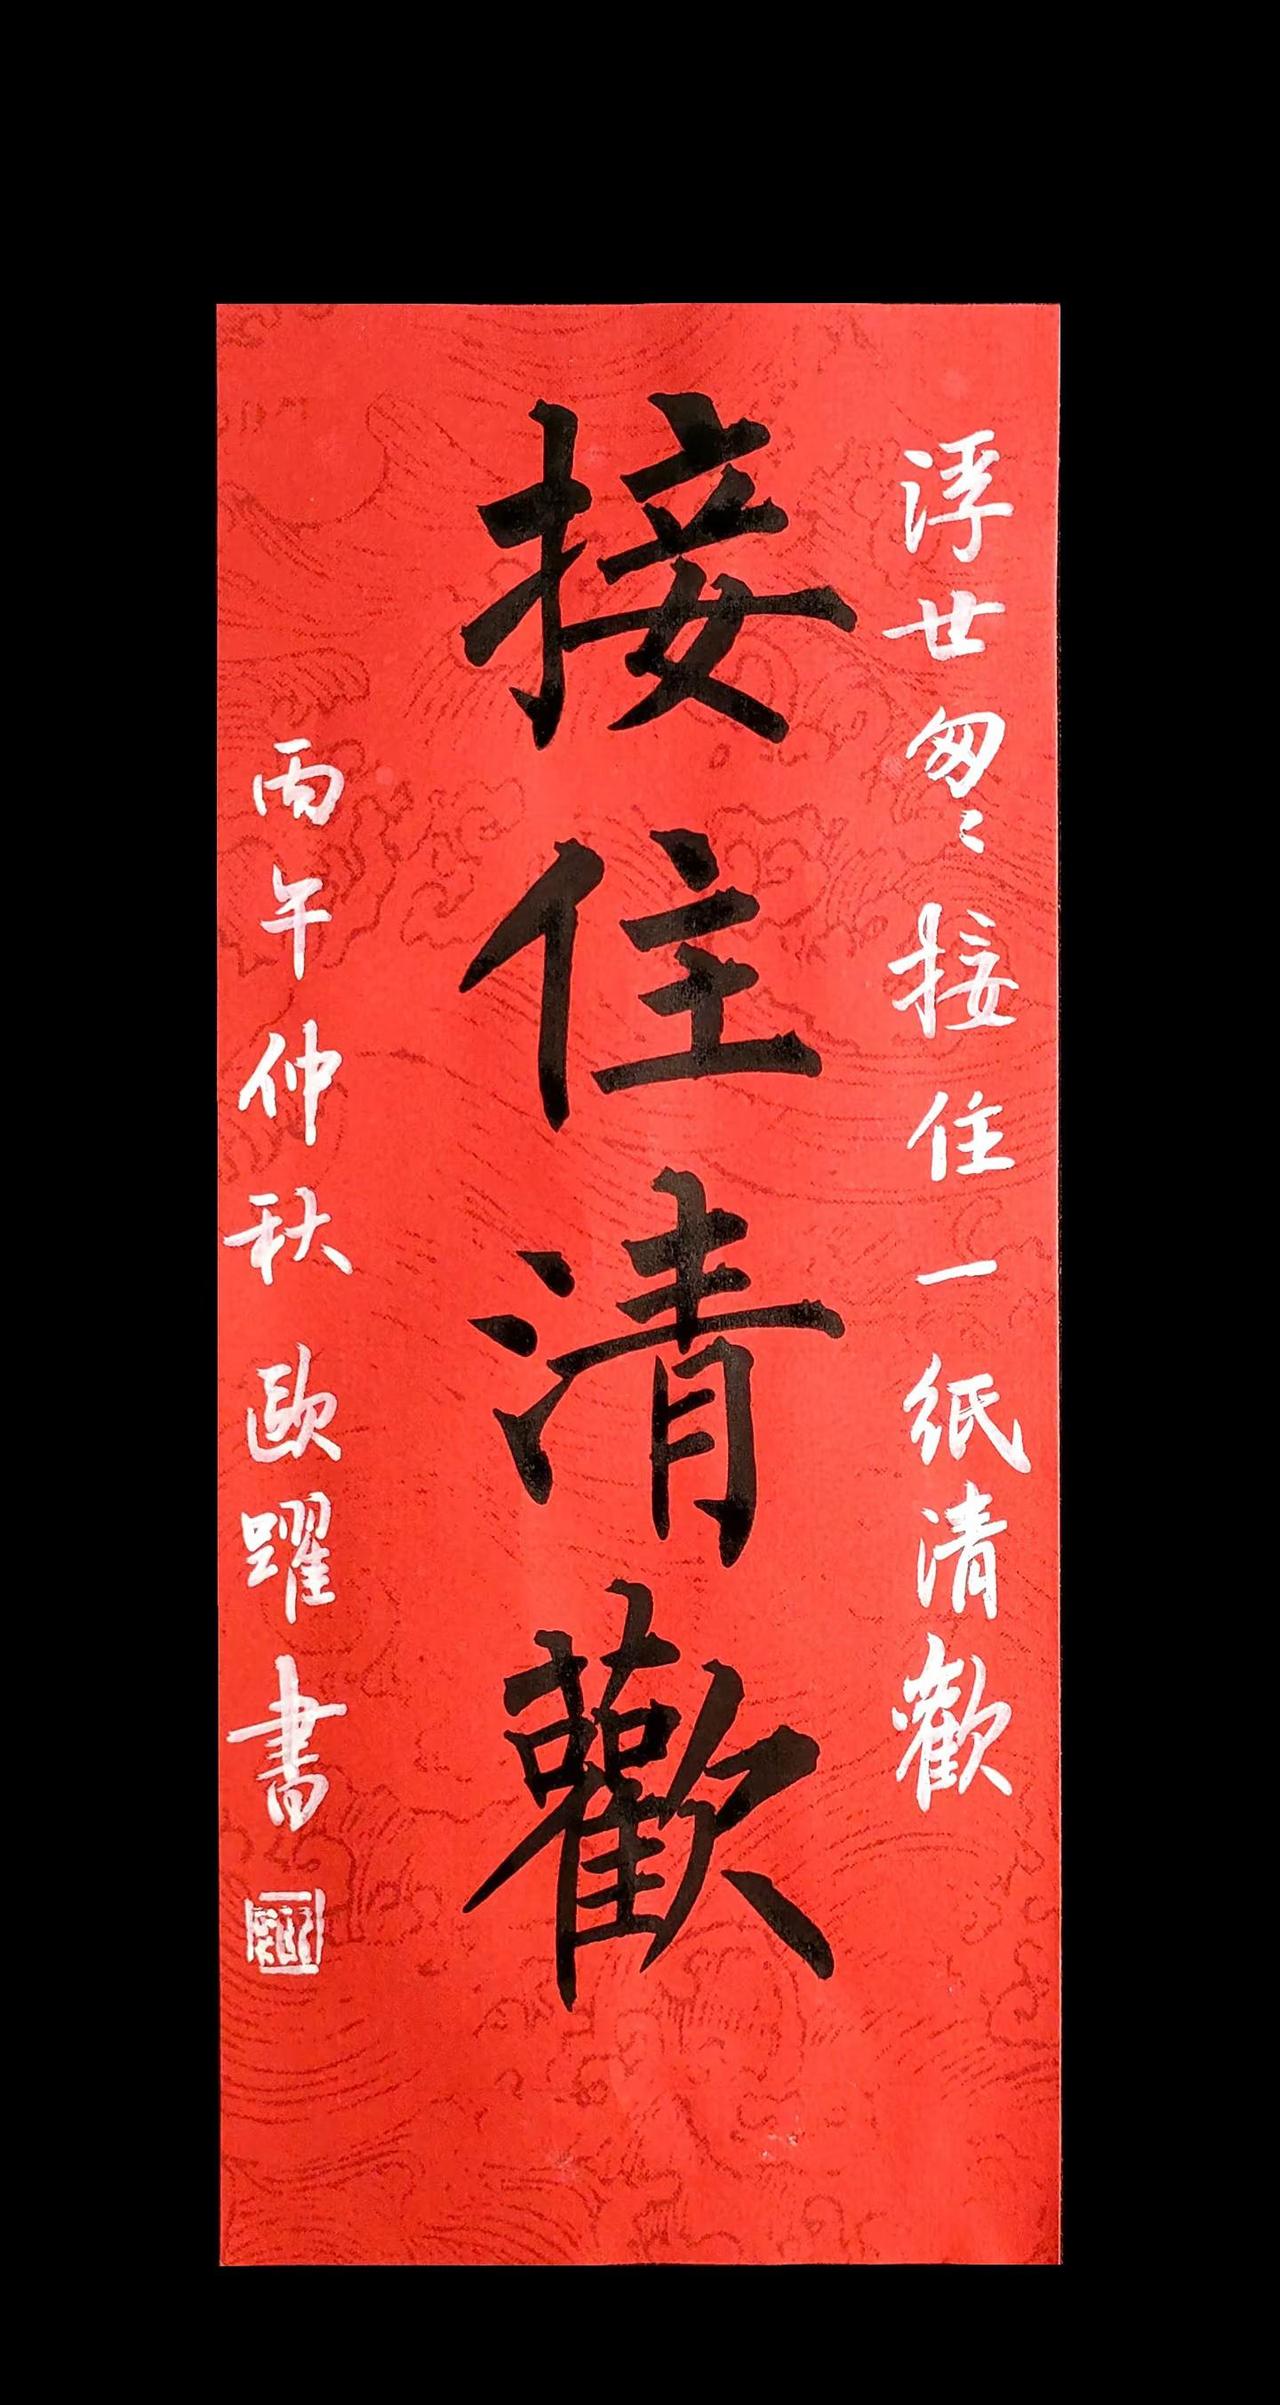 浮世匆々接住一紙清歡
接住清歡
丙午仲秋歐躍書